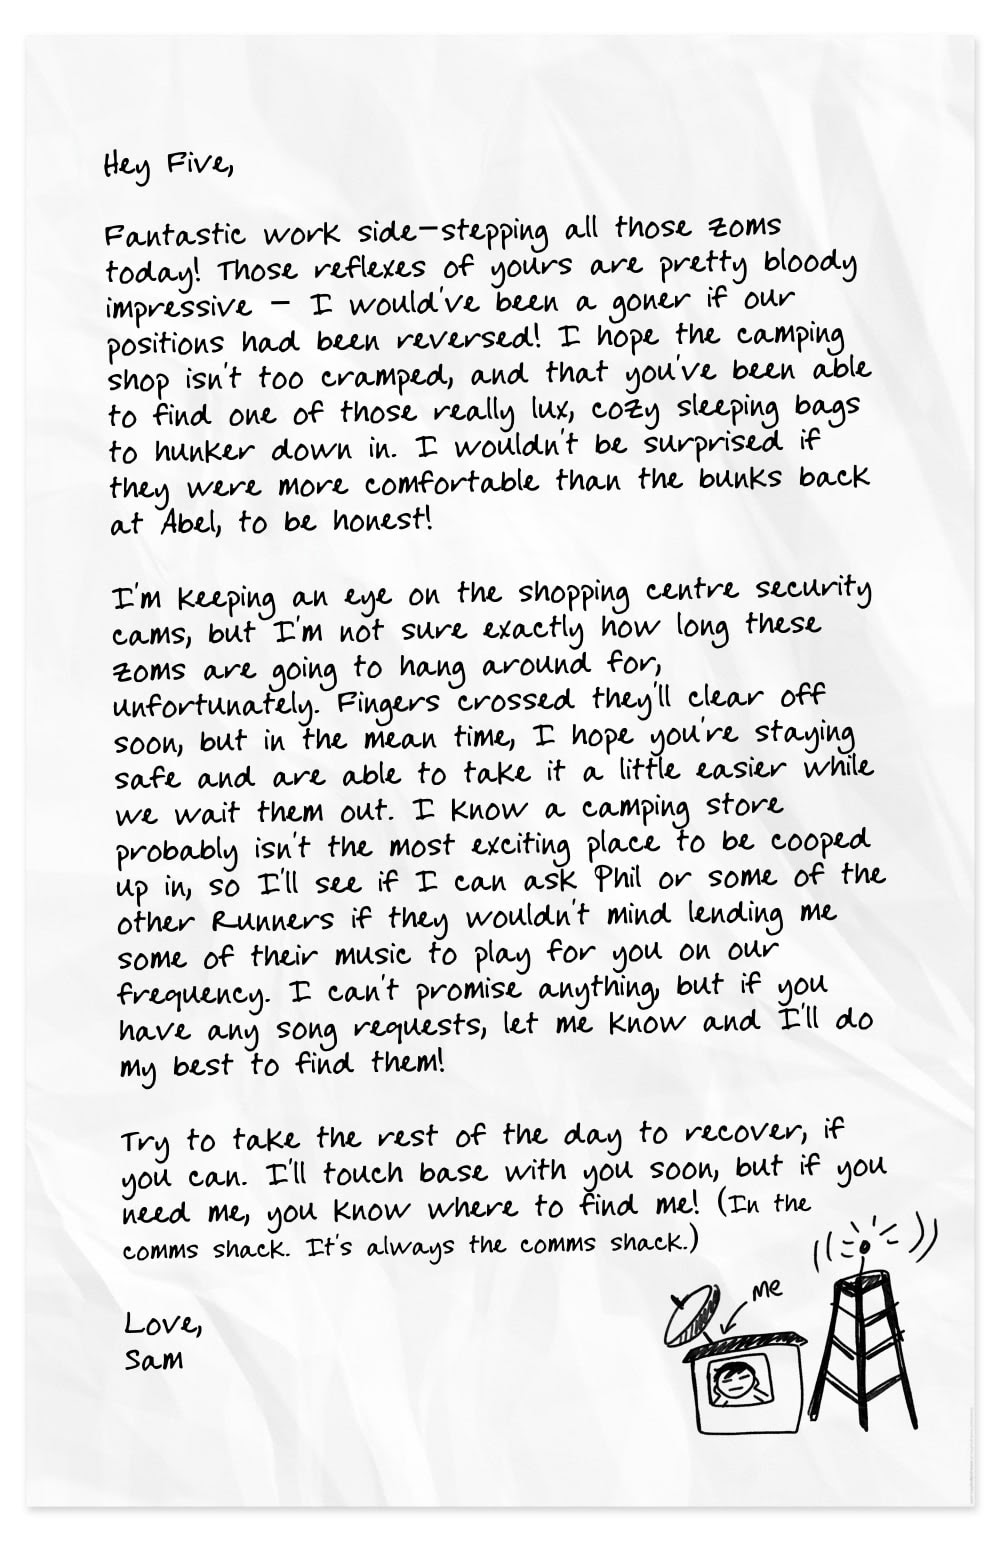 Hey Five,
Fantastic work side-stepping all those zoms
today! Those reflexes of yours are pretty bloody
impressive - I would've been a goner if our
positions had been reversed! I hope the camping
shop isn't too cramped, and that you've been able
to find one of those really lux, cozy sleeping bags
to hunker down in. I wouldn't be surprised if
they were more comfortable than the bunks back
at Abel, to be honest!
I'm keeping an eye on the shopping centre security
cams, but I'm not sure exactly how long these
zoms are going to hang around for,
unfortunately. Fingers crossed they'll clear off
soon, but in the mean time, I hope you're staying
safe and are able to take it a little easier while
we wait them out. I know a camping store
probably isn't the most exciting place to be cooped
up in, so I'll see if I can ask Phil or some of the
other Runners if they wouldn't mind lending me
some of their music to play for you on our
frequency. I can't promise anything, but if you
have any song requests, let me know and I'll do
my best to find them!
Try to take the rest of the day to recover, if
you can. I'll touch base with you soon, but if you
need me, you know where to find me! (In the
comms shack. It's always the comms shack.)
Love,
Sam
me